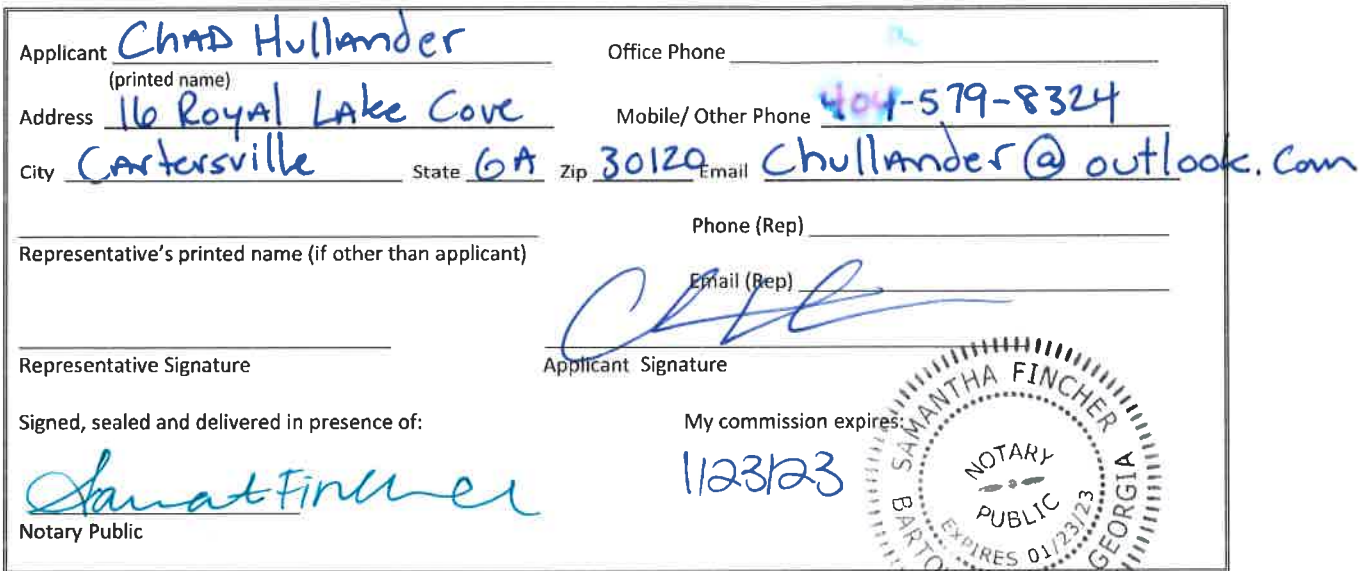 Applicant ChAD HullAnder Office Phone
(printed name)
Address 16 RoyAl LAke Cove Mobile/ Other Phone 404-579-8324
City CArtersville State GA Zip 30120 Email ChullAnder@outlook.com
Phone (Rep)
Representative's printed name (if other than applicant)
Email (Rep)
Representative Signature Applicant Signature
Signed, sealed and delivered in presence of: My commission expires:
1/23/23
Notary Public
SAMANTHA FINCHER
NOTARY
PUBLIC
EXPIRES 01/23/23
GEORGIA